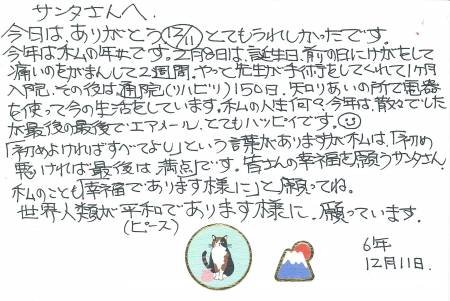 サンタさんへ
今日は、ありがとう 12/11 とてもうれしかったです。
今年は私の年女です。2月8日は、誕生日、前の日にけがをして
痛いのをがまんして2週間、やっと先生が手術をしてくれて1ケ月
入院、その後は、通院(ツウイン)150日、知りあいの所で電器
を使って今の生活をしています。私の人生何?今年は、散々でした
が最後の最後でエアメール、とてもハッピイです。
「初めよければすべてよし」という言葉がありますが私は、「初め
悪ければ最後は満点」です。皆さんの幸福を願うサンタさん、
私のことも「幸福であります様に」と願ってね。
世界人類が平和であります様に、願っています。
(ピース)
6年
12月11日.